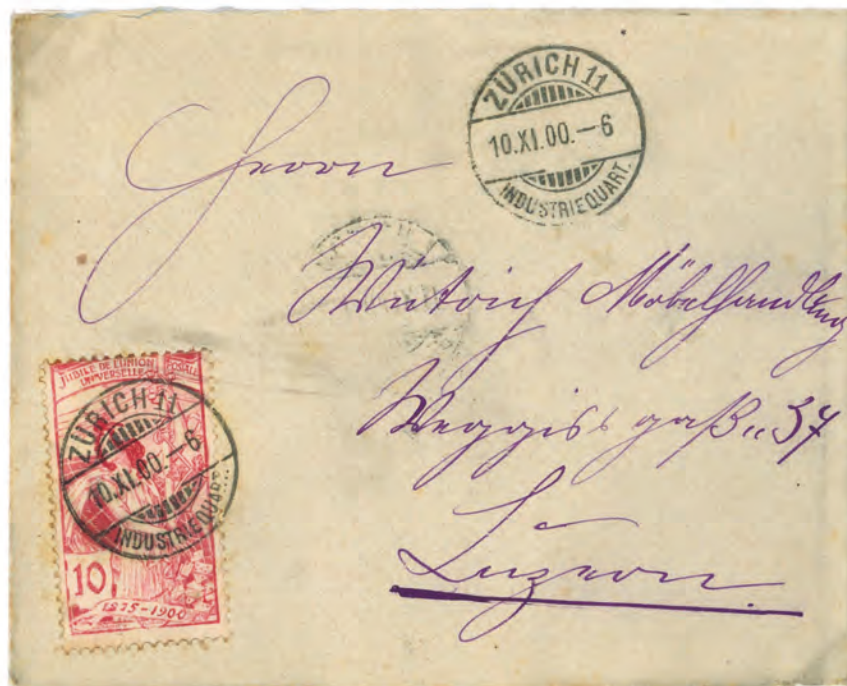 ZÜRICH 11
10.XI.00.—6
INDUSTRIEQUART.
Herrn
Wütrich Möbelhandlung
Weggissgaß„ 37
Luzern.
JUBILÉ DE L'UNION POSTALE
UNIVERSELLE
ZÜRICH 11
10.XI.00.—6
INDUSTRIEQUART.
10
1875-1900